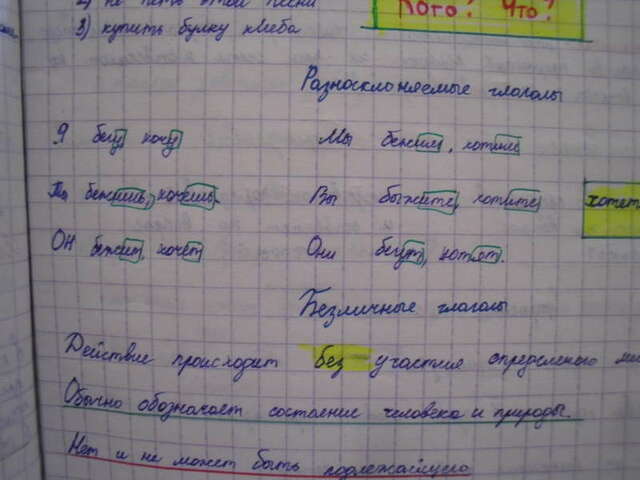 2) не петь этой песни
3) купить булку хлеба
Кого? Что?
Разносклоняемые глаголы
Я бегу, хочу Мы бежим, хотим
Ты бежишь, хочешь. Вы быжите, хотите
хотет
Он бежит, хочет Они бегут, хотят.
Безличные глаголы
Действие происходит без участия
Обычно обозначает состояние человека и природы.
Нет и не может быть подлежащего